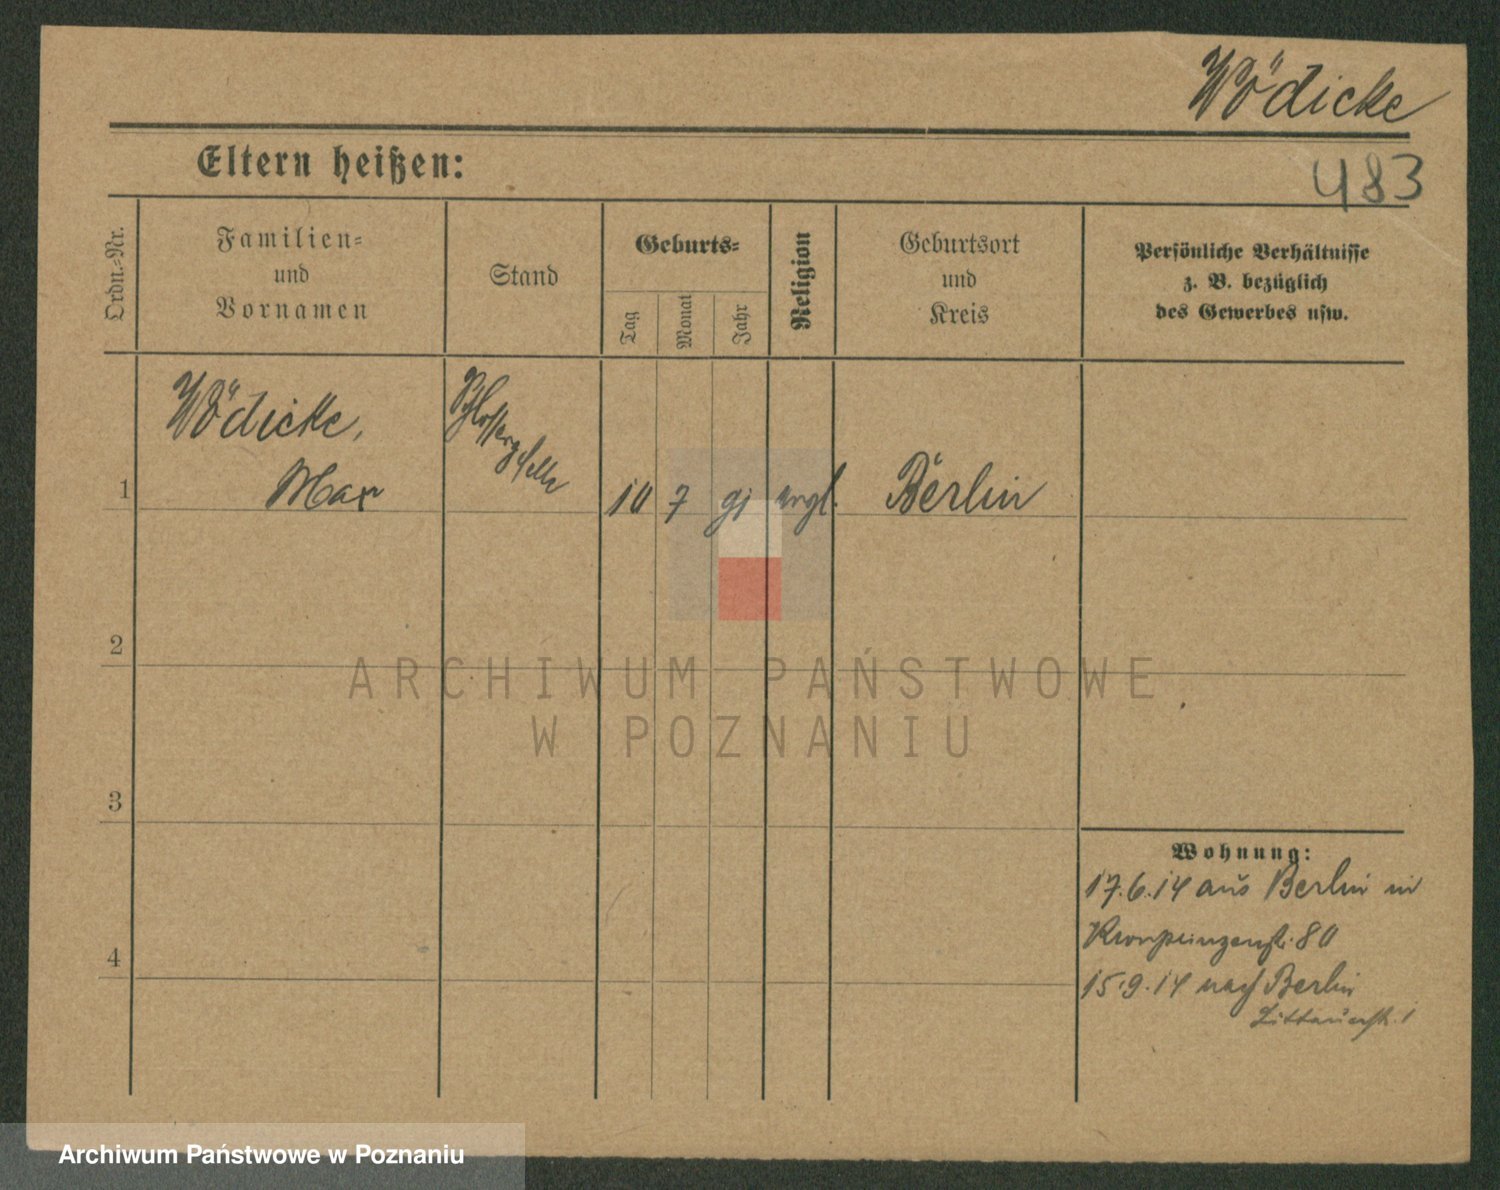 Wödicke
Eltern heißen:
483
Ordn.-Nr.
Familien-
und
Vornamen
Stand
Geburts-
Tag
Monat
Jahr
Religion
Geburtsort
und
Kreis
Persönliche Verhältnisse
z. B. bezüglich
des Gewerbes usw.
1
Wödicke,
Max
Schlossergeselle
10
7
91
evgl.
Berlin
2
3
4
Wohnung:
17.6.14 aus Berlin in
Kronprinzenstr. 80
15.9.14 nach Berlin
ARCHIWUM PAŃSTWOWE
W POZNANIU
Archiwum Państwowe w Poznaniu